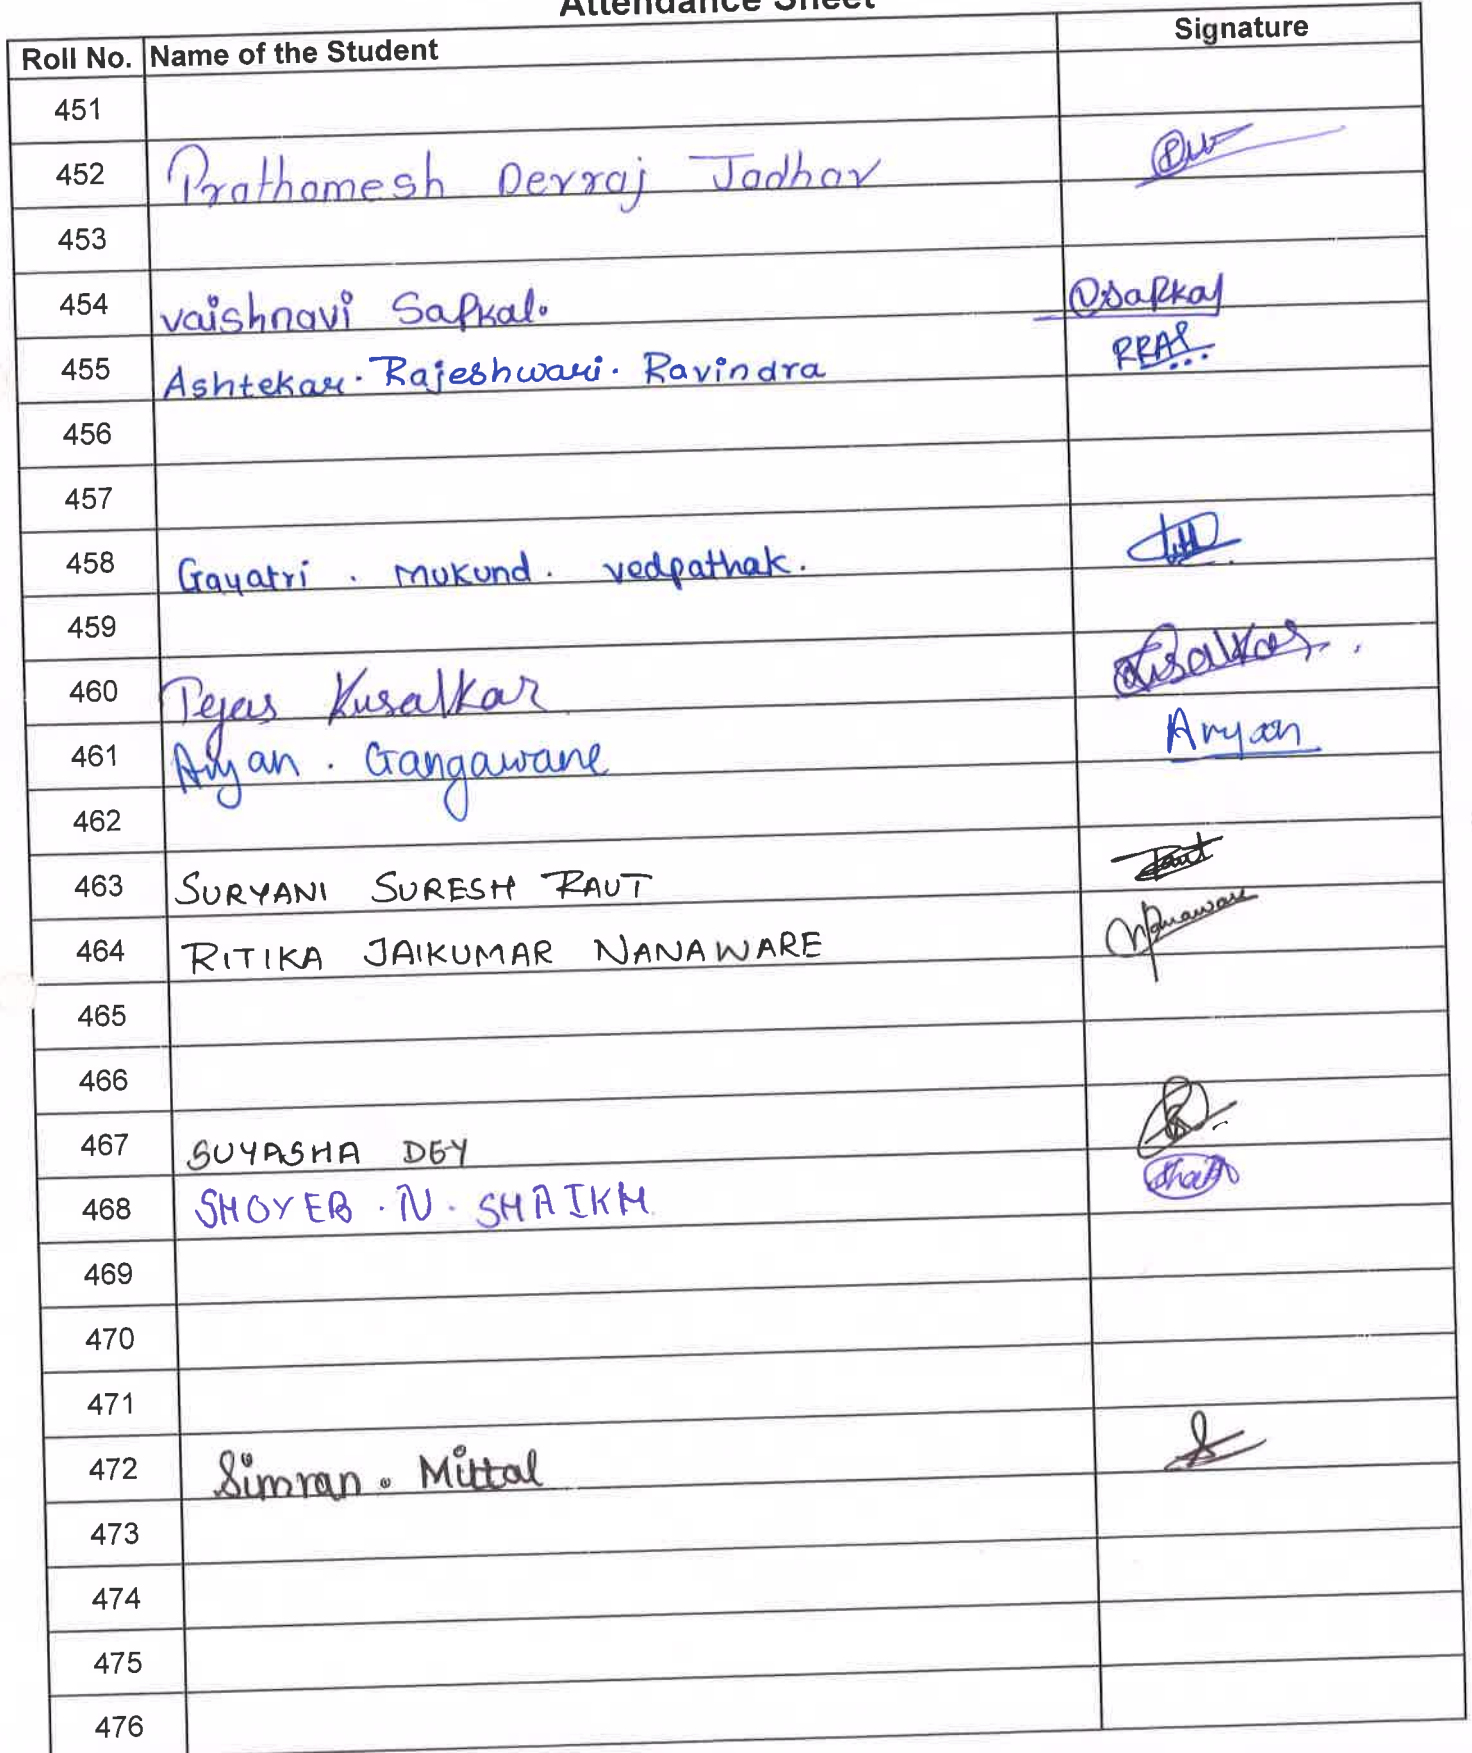 Attendance Sheet
Roll No. Name of the Student Signature
451
452 Prathamesh Devraj Jadhav
453
454 Vaishnavi Sapkal. Sapkal
455 Ashtekar. Rajeshwari. Ravindra RRA
456
457
458 Gayatri . Mukund . vedpathak.
459
460 Tejas Kusalkar Kusalkar
461 Aryan . Gangawane Aryan
462
463 SURYANI SURESH RAUT Raut
464 RITIKA JAIKUMAR NANAWARE Nanaware
465
466
467 SUYASHA DEY
468 SHOYEB . N . SHAIKH Shaikh
469
470
471
472 Simran . Mittal
473
474
475
476